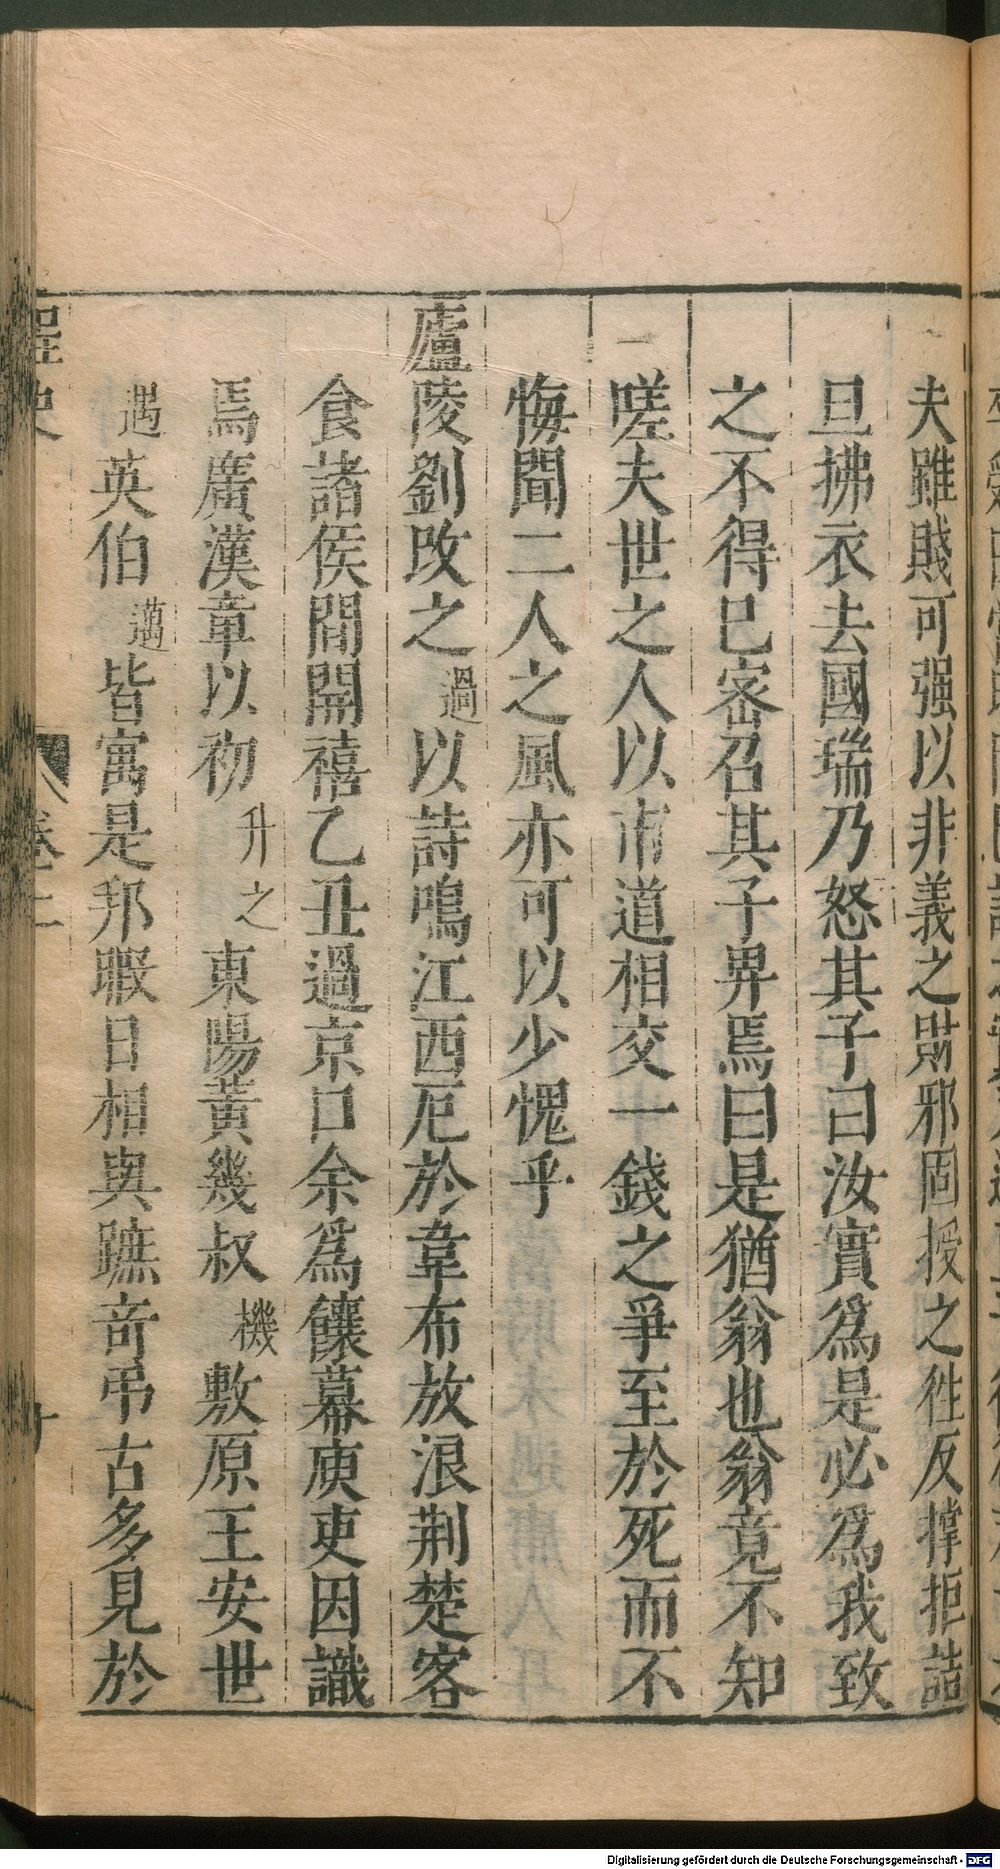 夫雖賤可强以非義之財邪固授之徃反撑拒詰
旦拂衣去國瑞乃怒其子曰汝實爲是必爲我致
之不得已密召其子畀焉曰是猶翁也翁竟不知
嗟夫世之人以市道相交一錢之爭至於死而不
悔聞二人之風亦可以少愧乎
廬陵劉改之過以詩鳴江西厄於韋布放浪荆楚客
食諸侯間開禧乙丑過京口余爲饟幕庾吏因識
焉廣漢章以初升之東陽黃幾叔機敷原王安世
遇英伯邁皆寓是邦暇日相與蹠奇弔古多見於
桯史
卷二
Digitalisierung gefördert durch die Deutsche Forschungsgemeinschaft - DFG